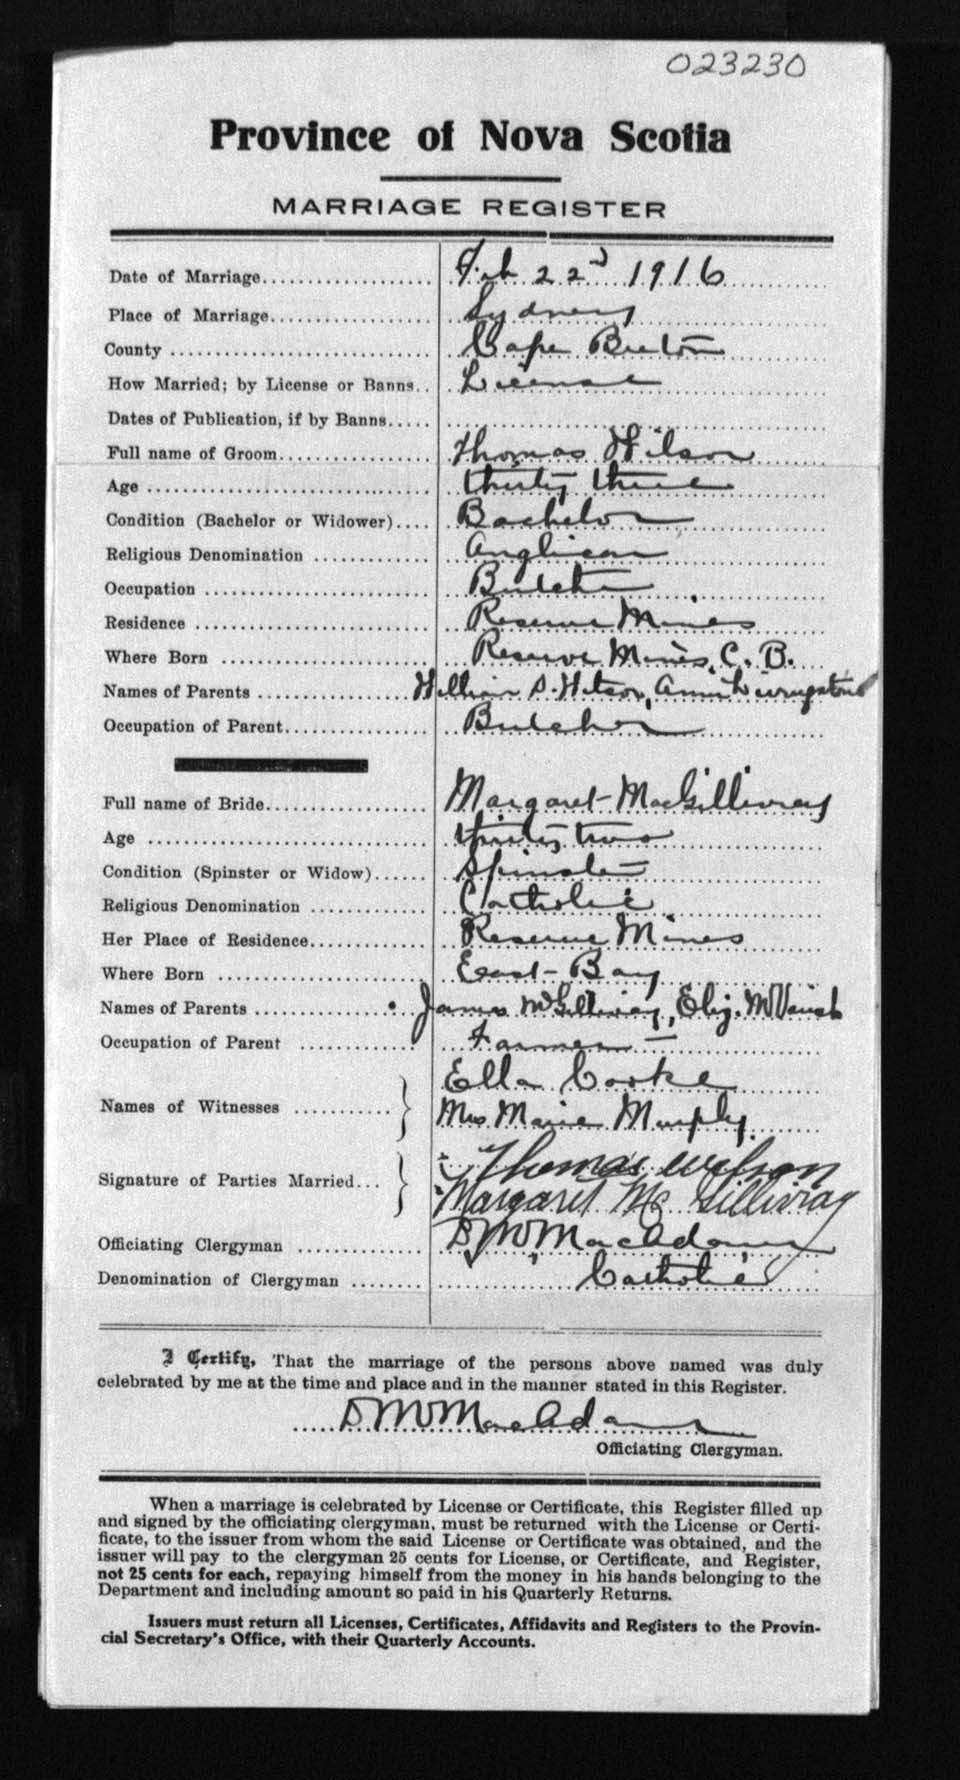 023230
Province of Nova Scotia
MARRIAGE REGISTER
Date of Marriage.................... Feb 22nd 1916
Place of Marriage.................... Sydney
County .................... Cape Breton
How Married; by License or Banns.. License
Dates of Publication, if by Banns.....
Full name of Groom.................... Thomas Wilson
Age .................... thirty three
Condition (Bachelor or Widower).... Bachelor
Religious Denomination .................... Anglican
Occupation .................... Butcher
Residence .................... Reserve Mines
Where Born .................... Reserve Mines, C. B.
Names of Parents .................... William S. Wilson, Annie Livingstone
Occupation of Parent.................... Butcher
Full name of Bride.................... Margaret MacGillivray
Age .................... thirty two
Condition (Spinster or Widow)...... Spinster
Religious Denomination .................... Catholic
Her Place of Residence.................... Reserve Mines
Where Born .................... East Bay
Names of Parents .................... James McGillivray, Eliz.
Occupation of Parent .................... Farmer
Names of Witnesses .................... Ella Cooke
Mrs Marie Murphy
Signature of Parties Married... Thomas Wilson
Margaret Mc Gillivray
Officiating Clergyman .................... D M MacAdam
Denomination of Clergyman ........ Catholic
I Certify, That the marriage of the persons above named was duly
celebrated by me at the time and place and in the manner stated in this Register.
D M MacAdam
Officiating Clergyman.
When a marriage is celebrated by License or Certificate, this Register filled up
and signed by the officiating clergyman, must be returned with the License or Certi-
ficate, to the issuer from whom the said License or Certificate was obtained, and the
issuer will pay to the clergyman 25 cents for License, or Certificate, and Register,
not 25 cents for each, repaying himself from the money in his hands belonging to the
Department and including amount so paid in his Quarterly Returns.
Issuers must return all Licenses, Certificates, Affidavits and Registers to the Provin-
cial Secretary's Office, with their Quarterly Accounts.